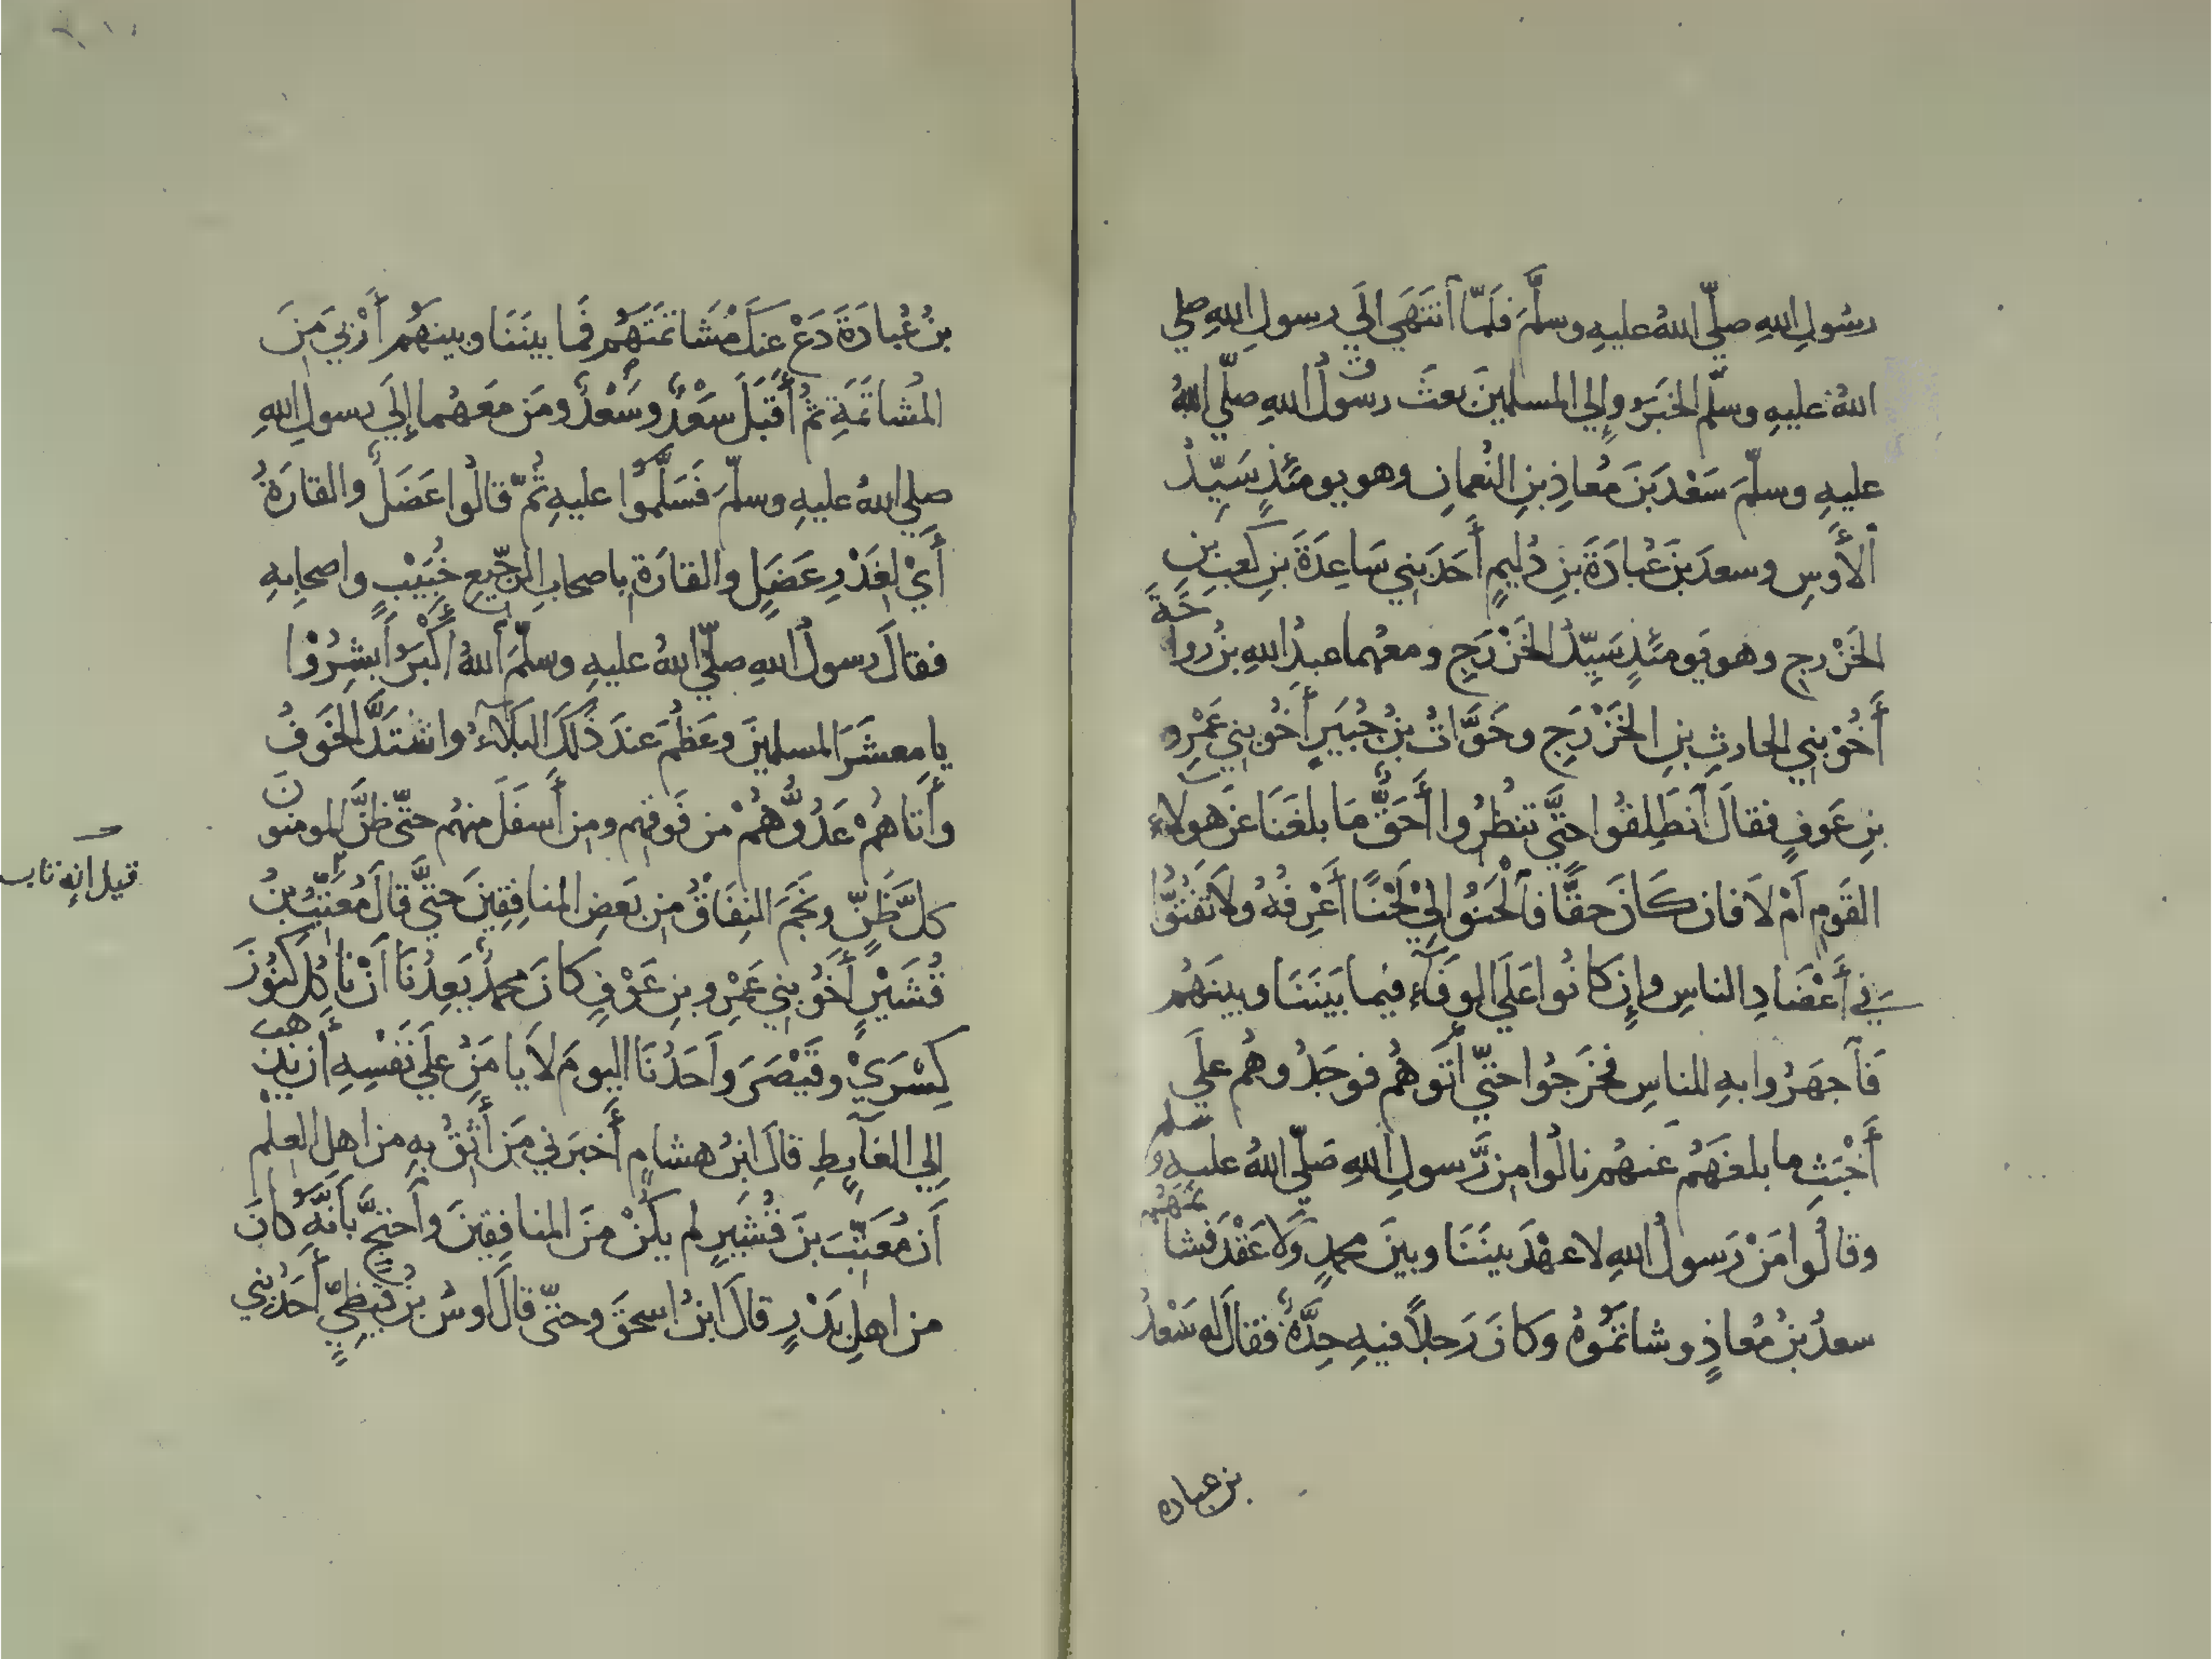 رسُولِ اللهِ صلّي اللهُ عليهِ وسلَّمَ فلَمّا أنتَهَي إلَي رسولِ اللهِ صلي
اللهُ عليهِ وسلّم الخبَرُ وإلي المسلمينَ بعثَ رسُولُ اللهِ صلّي اللهُ
عليهِ وسلّمَ سَعْدَ بنَ مُعاذِ بنِ النُعمانِ وهو يومئذٍ سَيِّدُ
الأَوسِ وسعدَ بنَ عُبادَةَ بنِ دُليمٍ أَحَدَ بني سَاعِدَةَ بنِ كعبِ بنِ
الخَزْرجِ وهو يَومئذٍ سَيِّدُ الخَزْرَجِ ومعهُما عبدُ اللهِ بنُ رواحَةَ
أَخُوْ بَنِي الحارثِ بنِ الخَزْرَجِ وخَوَّاتُ بنُ جُبَيرٍ أخُو بني عَمْرِو
بنِ عَوفٍ فقالَ أنطَلِقُوا حتَّي تنظُرُوا أَحَقٌّ مَا بلغَنَا عَن هولاءِ
القَومِ أَمْ لَا فان كَانَ حقًّا فَالْحَنُوا لِيْ لَحْنًا أَعْرِفُهُ ولَا تَفُتُّوا
في أَعْضَادِ الناسِ وإِن كانُوا عَلَي الوَفَآءِ فيما بَيَنَنَا وبينَهُم
فَاجهَرُوا بهِ للناسِ فخَرَجُوا حتّي أَتَوهُم فوجَدُوهُم علَي
أَخْبَثِ ما بلغَهُم عَنهُم نالُوا مِن رَّسولِ اللهِ صَلّي اللهُ عليهِ وسلم
وقالُوا مَنْ رَسولُ اللهِ لا عهْدَ بينَنَا وبينَ محمدٍ وَلَا عَقْدَ فَشاتمَهُم
سعدُ بنُ مُعاذٍ وشاتَمُوهُ وكانَ رَجلاً فيهِ حِدَّةٌ فقالَ له سَعْدُ
بن عباده
بنُ عُبادَةَ دَعْ عنكَ مُشَاتَمَتَهُم فَما بينَنَا وبينهُم أَرْبَي مِنَ
المُشاتَمَةِ ثمُ أَقبَلَ سَعْدٌ وسَعْدٌ ومَن معَهُما إلَي رسولِ اللهِ
صلي اللهُ عليهِ وسلّمَ فَسَلَّمُوا عليهِ ثُمّ قالُوا عَضَلٌ والقارَةُ
أَيْ لِغَدْرِ عَضَلٍ والقارَةِ باصحابِ الرَّجِيعِ خُبَيْبٍ واصحابِهِ
فقالَ رسولُ اللهِ صلّي اللهُ عليهِ وسلّمَ اَللهُ أَكْبَرُ أَبشِرُوْا
يا معشَرَ المسلمينَ وعَظُمَ عندَ ذَلكَ البَلآءُ واشتَدَّ الخَوفُ
وأَتاهُمْ عَدُوُّهُمْ من فَوقِهِم ومِن أَسفَلَ منهُم حتّي ظَنَّ المومنونَ
كلَّ ظَنٍّ ونَجَمَ النِفَاقُ مِن بَعضِ المنافِقِينَ حتَّي قالَ مُعَتِّبُ بنُ
قُشَيْرٍ أَخُو بني عَمْرِو بنِ عَوْفٍ كانَ محمدٌ يَعِدُنَا أَنْ نَاكُلَ كنُوزَ
كِسْرَيْ وقَيْصَرَ وأَحَدُنَا اليومَ لَا يامَنُ علَي نَفْسِهِ أَن يذهبَ
إلي الغآيِطِ قالَ ابنُ هشامٍ أَخبَرني مَن أَثِقُ بهِ من اهلِ العِلْم
أَن مُعَتِّبَ بنَ قُشَيرٍ لم يكُنْ منَ المنافِقِينَ وأحتجَّ بأَنَّهُ كانَ
من اهلِ بَدْرٍ قالَ ابنُ اسحقَ وحتّي قالَ اوسُ بنُ قَيظِيٍّ أَحَدُ بني
قيل انه تاب